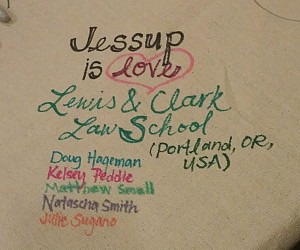 Jessup
is love
Lewis & Clark
Law School
(Portland, OR,
USA)
Doug Hageman
Kelsey Peddie
Matthew Small
Natascha Smith
Julie Sugano